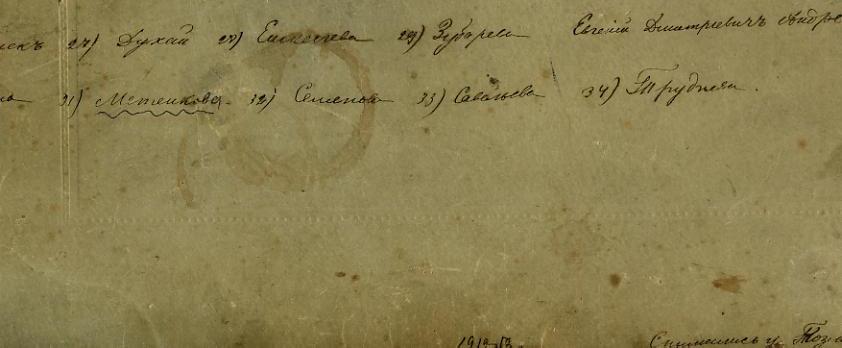 27) Духай 28) Елисеева 29) Зубарева Евгеній Дмитріевичъ
31) Метелкова 32) Семенова 33) Савельева 34) Труднева.
1912-13.
Снимались у